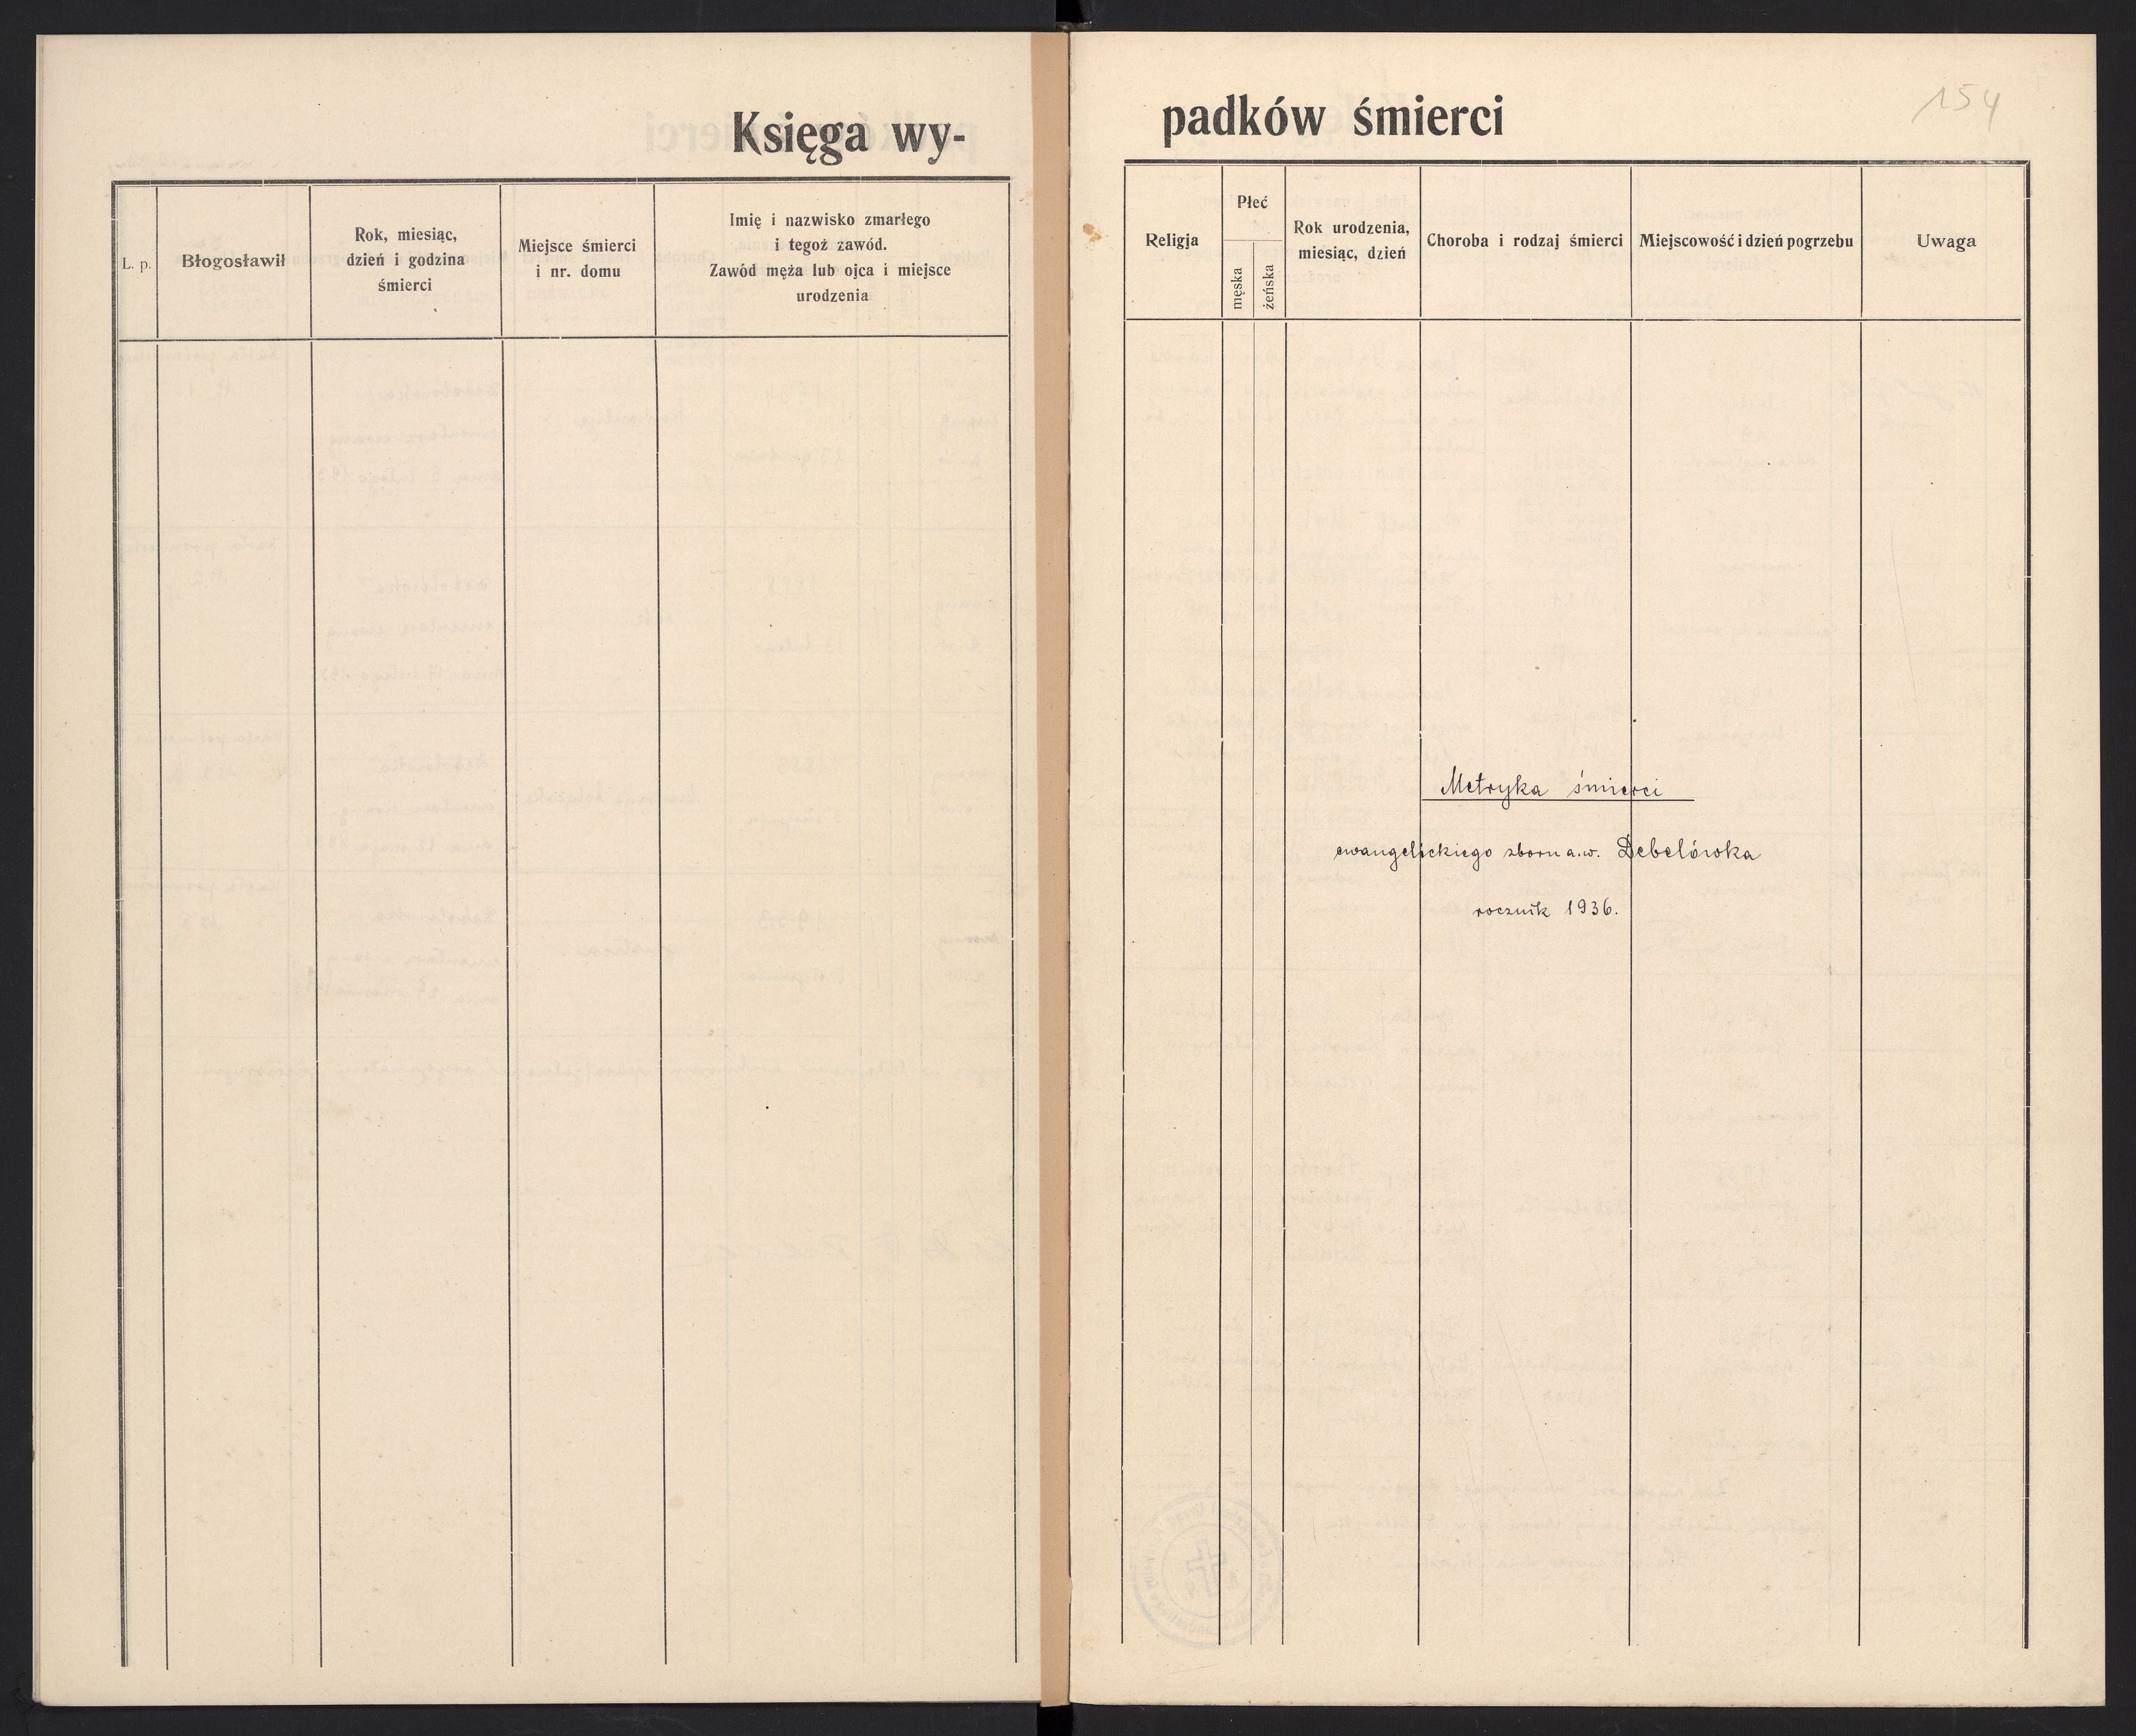 Księga wy-
L. p.
Błogosławił
Rok, miesiąc,
dzień i godzina
śmierci
Miejsce śmierci
i nr. domu
Imię i nazwisko zmarłego
i tegoż zawód.
Zawód męża lub ojca i miejsce
urodzenia
padków śmierci
154
Religja
Płeć
męska
żeńska
Rok urodzenia,
miesiąc, dzień
Choroba i rodzaj śmierci
Miejscowość i dzień pogrzebu
Uwaga
Metryka śmierci
ewangelickiego zboru a.w. Debelówka
rocznik 1936.